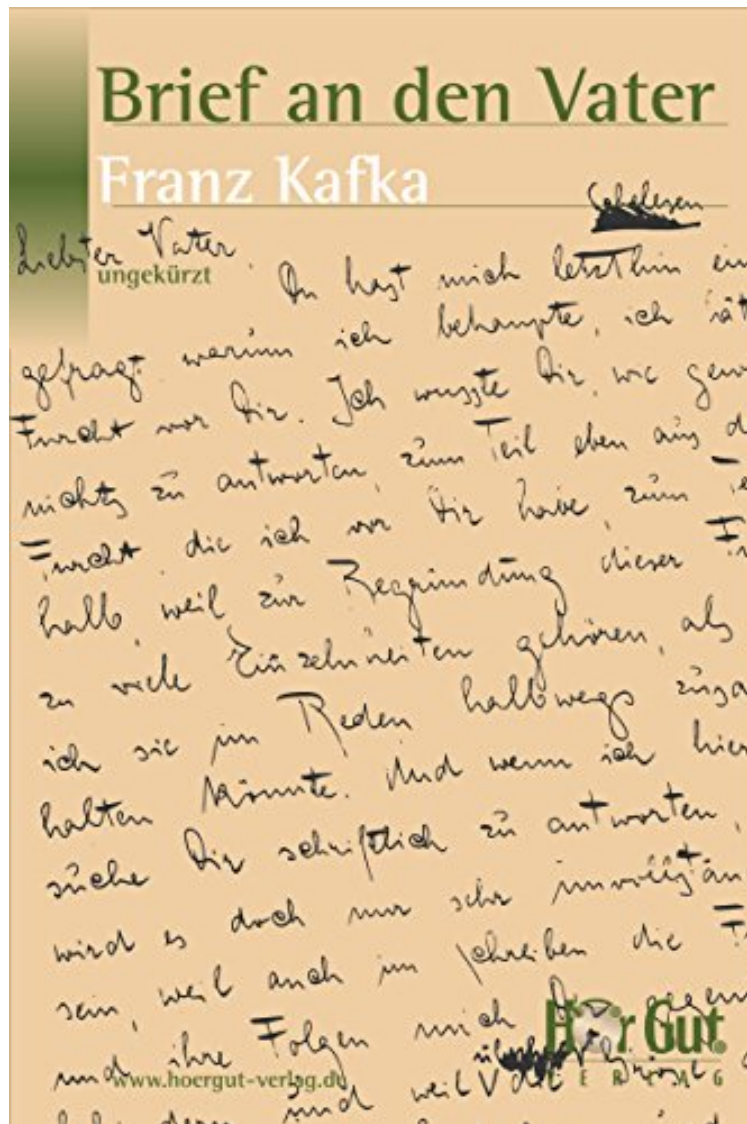 Brief an den Vater
Franz Kafka
Schelesen
Liebster Vater,
ungekürzt
Du hast mich letzthin ein
gefragt, warum ich behaupte, ich hät
Furcht vor Dir. Ich wusste Dir, wie gewö
nichts zu antworten, zum Teil eben aus d
Furcht, die ich vor Dir habe, zum Te
halb, weil zur Begründung dieser Fu
zu viele Einzelnheiten gehören, als
ich sie im Reden halbwegs zusa
halten könnte. Und wenn ich hier
suche Dir schriftlich zu antworten,
wird es doch nur sehr unvollstän
sein, weil auch im Schreiben die Fu
und ihre Folgen mich Dir gegen
Hör Gut
VERLAG
www.hoergut-verlag.de
und weil die Grösse